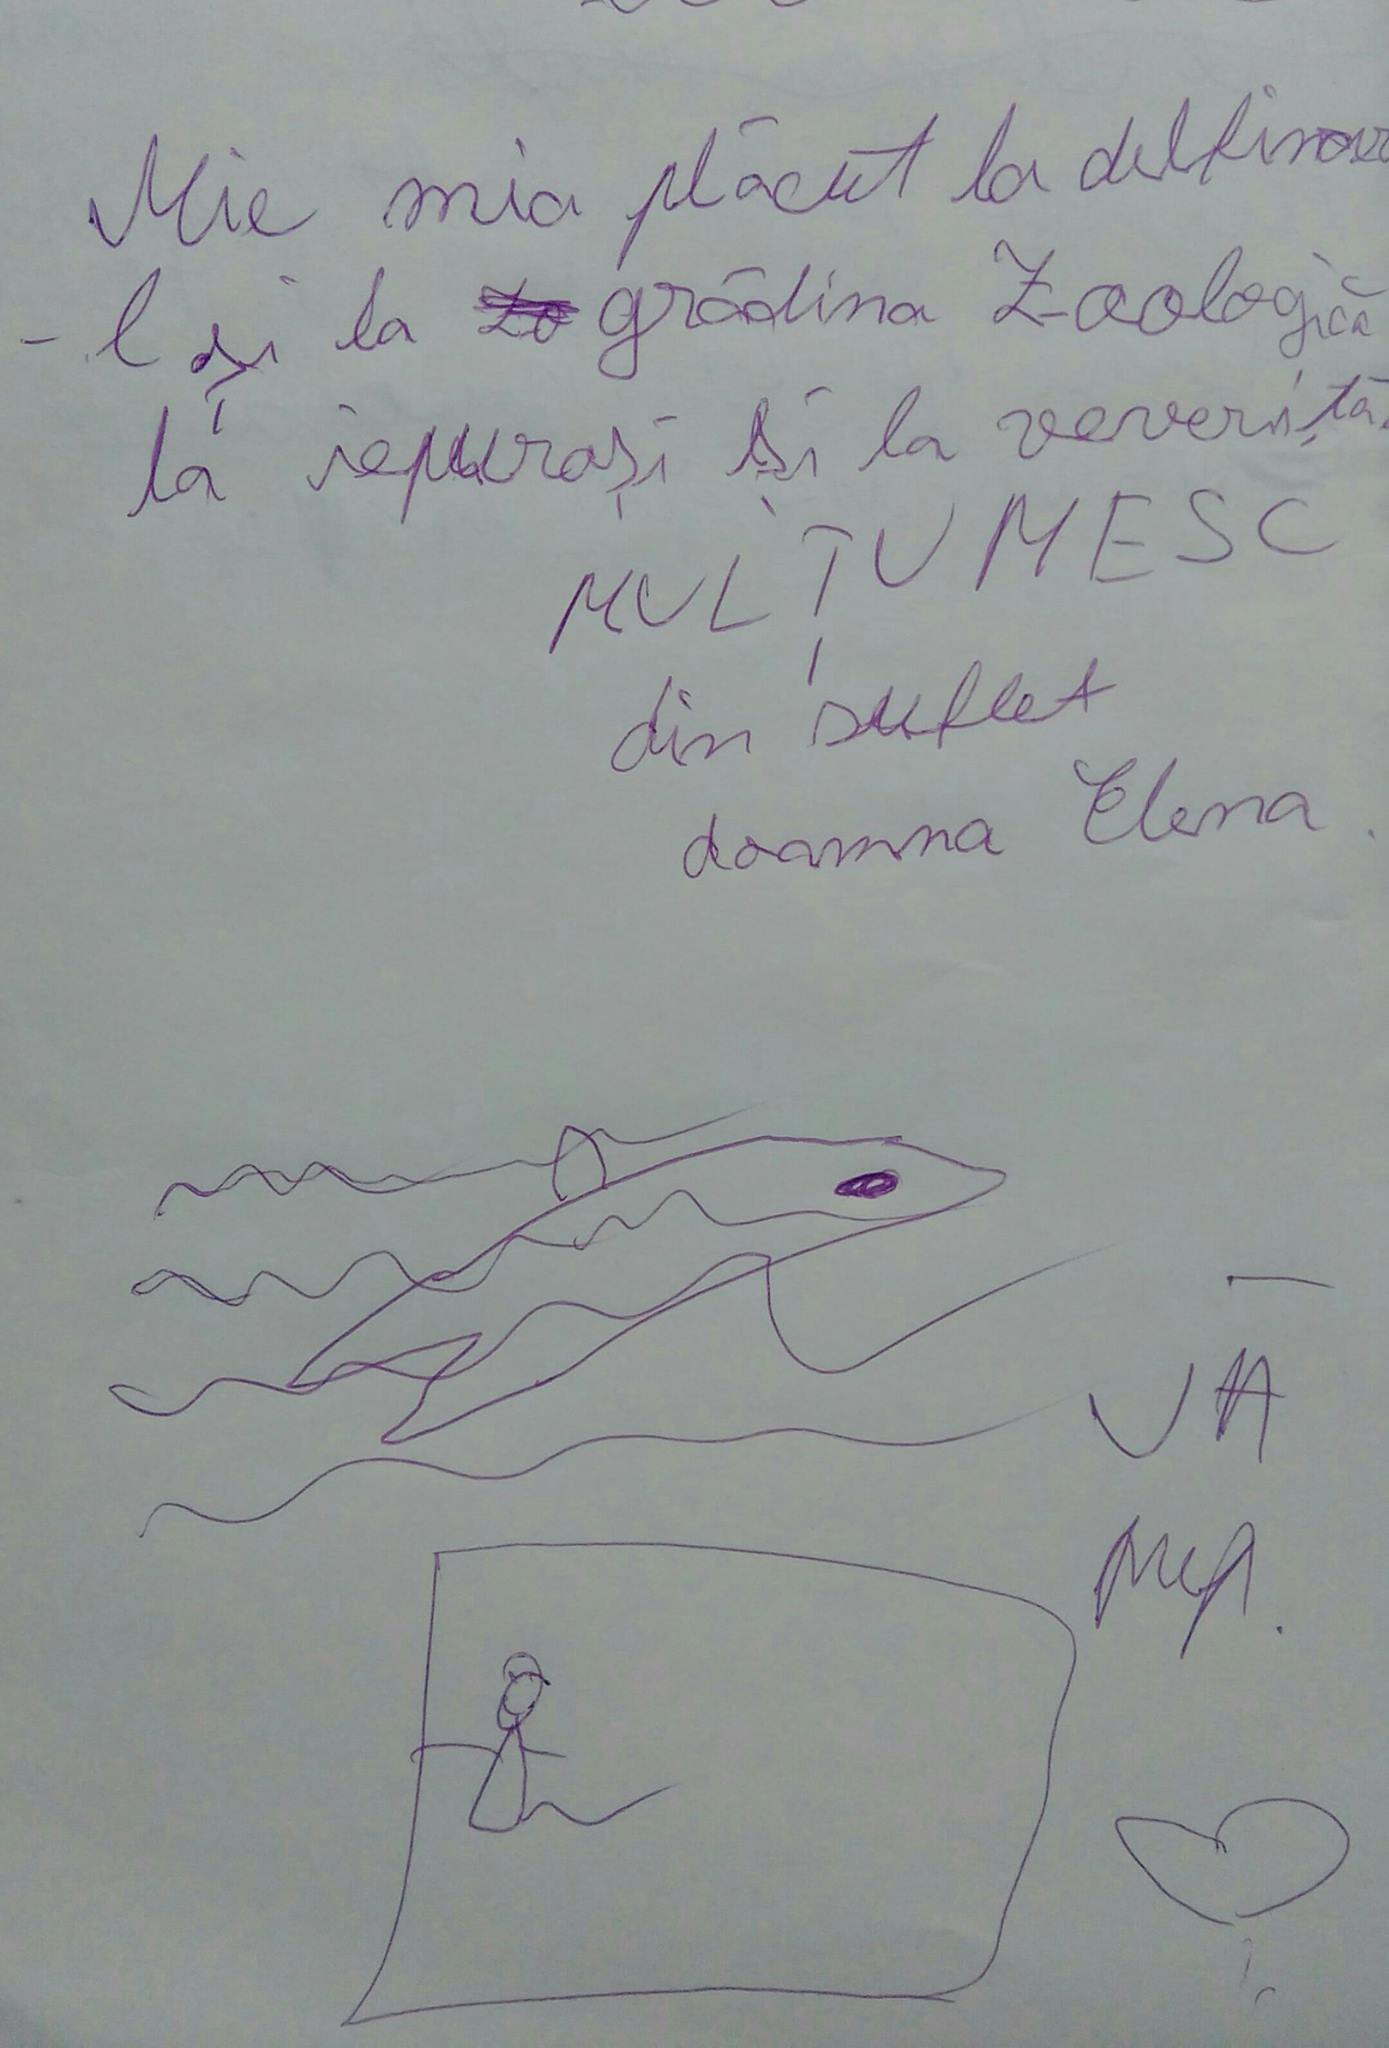 Mie mia plăcut la delfinar
-l și la grădina Zoologică
la iepurași și la veveriță.
MULȚUMESC
din suflet
doamna Elena.
VĂ